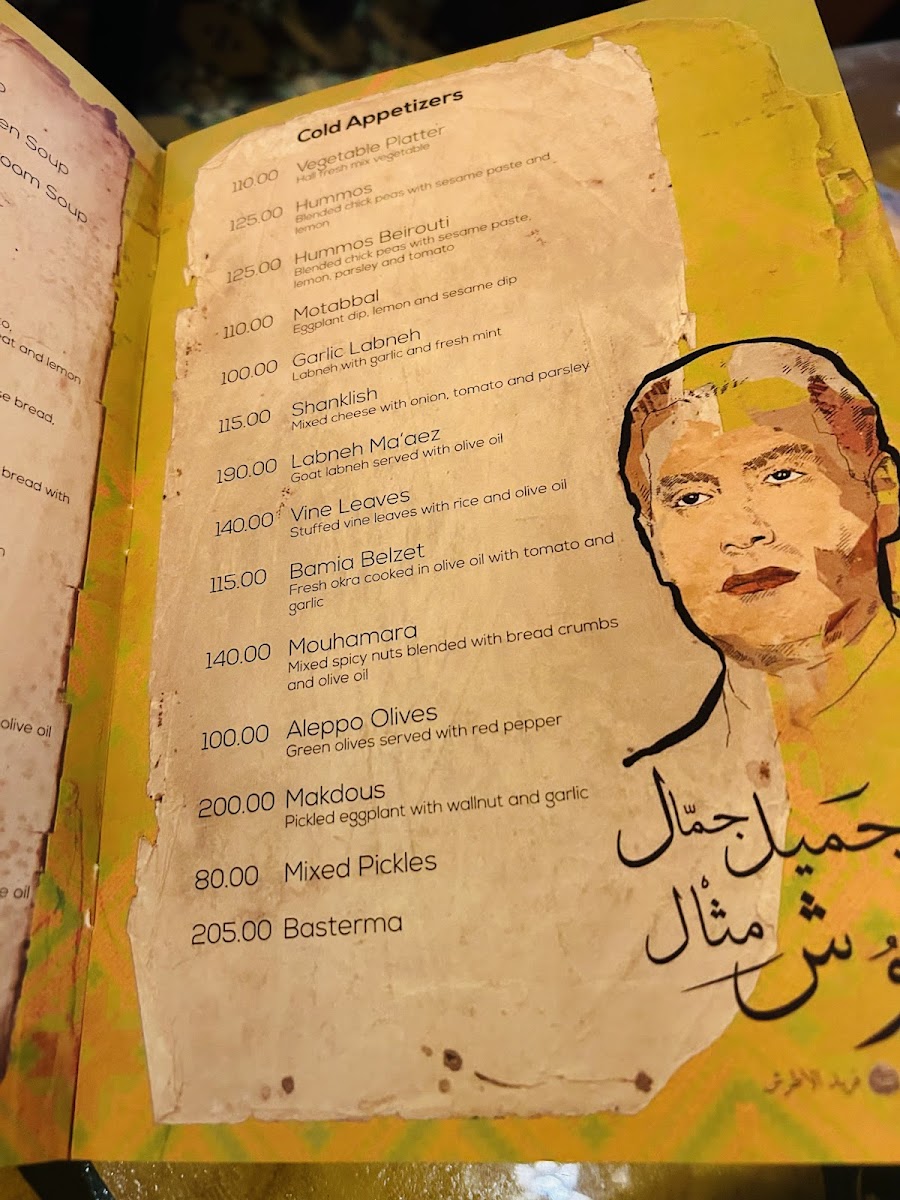 en Soup
oom Soup
eat and lemon
se bread,
bread with
olive oil
e oil
Cold Appetizers
110.00 Vegetable Platter
Hall fresh mix vegetable
125.00 Hummos
Blended chick peas with sesame paste and
lemon
125.00 Hummos Beirouti
Blended chick peas with sesame paste,
lemon, parsley and tomato
110.00 Motabbal
Eggplant dip, lemon and sesame dip
100.00 Garlic Labneh
Labneh with garlic and fresh mint
115.00 Shanklish
Mixed cheese with onion, tomato and parsley
190.00 Labneh Ma'aez
Goat labneh served with olive oil
140.00 Vine Leaves
Stuffed vine leaves with rice and olive oil
115.00 Bamia Belzet
Fresh okra cooked in olive oil with tomato and
garlic
140.00 Mouhamara
Mixed spicy nuts blended with bread crumbs
and olive oil
100.00 Aleppo Olives
Green olives served with red pepper
200.00 Makdous
Pickled eggplant with wallnut and garlic
80.00 Mixed Pickles
205.00 Basterma
جَميل جمّال
ش مثال
فريد الاطرش